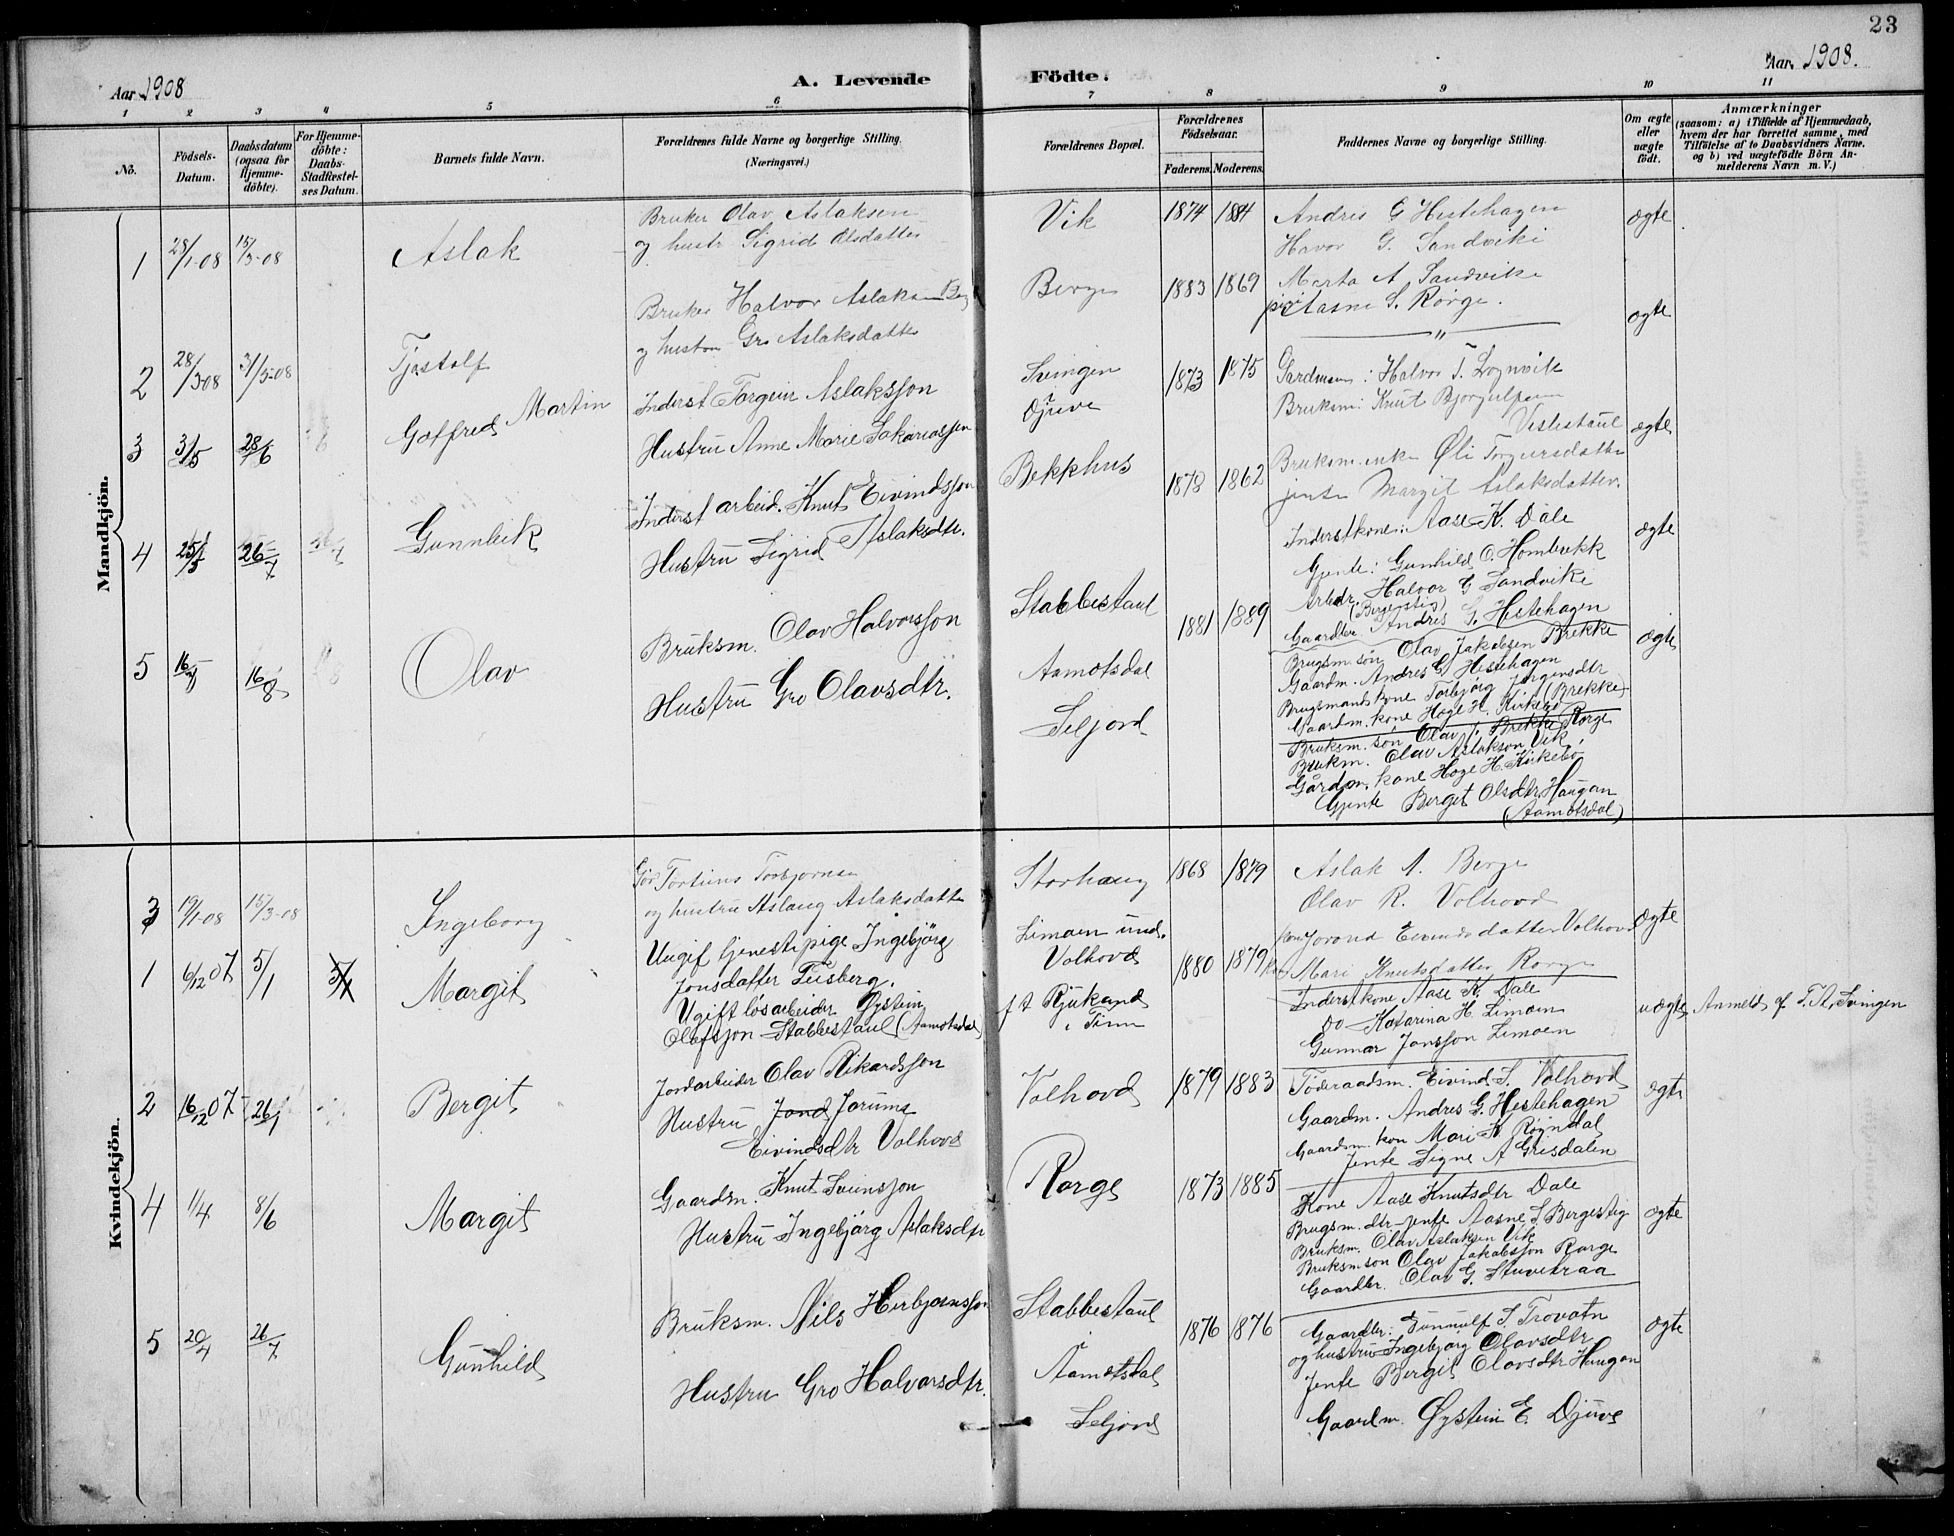 23
Aar 1908
A. Levende
Födte.
Aar. 1908.
1 2 3 4 5 6 7 8 9 10 11
No.
Födsels-Datum.
Daabsdatum (ogsaa for Hjemme-döbte).
For Hjemme-döbte: Daabs-Stadfæstel-ses Datum.
Barnets fulde Navn.
Forældrenes fulde Navne og borgerlige Stilling.
(Næringsvei.)
Forældrenes Bopæl.
Forældrenes Födselsaar.
Faderens. Moderens.
Faddernes Navne og borgerlige Stilling.
Om ægte eller uægte födt.
Anmærkninger
(saasom: a) i Tilfælde af Hjemmedaab, hvem der har forrettet samme, med Tilföielse af to Daabsvidners Navne. og b) ved uægtefödte Börn An-melderens Navn m. V.)
Mandkjön.
1 28/1-08 15/3-08 Aslak
Bruker Olav Aslaksen
og hustr Sigrid Olsdatter
Vik 1874 1884
Andres G Hestehagen
Havor G. Sandviki
Marta A Sandvike
pige Aasne S. Rorge.
ægte
2 28/3-08 31/5-08 Tjostolf
Bruker Halvor Aslaksen
og hustru Gro Aslaksdatter
Berge 1883 1869
"
ægte
3 3/5 28/6 Goffred Martin
Inderst Torgeir Aslaksson
Hustru Anne Marie Sakariassen
Svingen
Djuve
1873 1875
Gardmann: Halvor T. Lognvik
Bruksm: Knut Bjorgulfsen
Vislestaul
Bruksm. enke Øli Torgersdatter
jente Margit Aslaksdatter.
ægte
4 25/5 26/7 Gunnleik
Inderst arbeid. Knut Eivindsson
Hustru Sigrid Aslaksdtr.
Bekkhus 1878 1862
Inderstkone: Aase K. Dale
Gjente: Gunhild O. Hombekk
Arbdr. Halvor G Sandvike
(Bergestig)
Gaardbr. Andres G. Hestehagen
ægte
5 16/8 Olav
Bruksm. Olav Halvorsson
Hustru Gro Olavsdtr.
Stabbestaul
Aamotsdal
Seljord
1881 1889
Brugsm. søn Olav Jakobsen Brekke
Gaardm. Andres G Hestehagen
Brugsmandskone Torbjørg Jørgensdtr
Gaardm. kone Hæge H. Kirkebø (Brekke)
Bruksm. søn Olav J. Brekke Rorge
Bruksm. Olav Aslakson Vik
Gårdm. kone Hæge H. Kirkebø
Gjente Berget Olsdtr. Haugan
(Aamotsdal)
ægte
Kvindekjön.
3 19/1-08 15/3-08 Ingeborg
og hustru Aslaug Aslaksdatter
Storhaug 1868 1879
Aslak A. Berge
Olav R. Volhovd
Jorond Eivindsdatter Volhovd
Mari Knutsdatter Rorge
ægte
1 6/12 07 5/1 Margit
Ungif tjenestepige Ingebjörg
Jonsdatter Teisberg.
Ugift løsarbeider Øystein
Olafsson Stabbestaul (Aamotsdal)
Limoen und.
Volhovd
f t Rjukand
i Tinn
1880 1879
Inderstkone Aase K. Dale
Do Katarina H. Limoen
Gunnar Jonsson Limoen
uægte
Anmeld af T. A. Svingen
2 16/12 07 26/1 Bergit
Jordarbeider Olav Rikardsson
Hustru Jond Jorunn
Eivindsdtr Volhovd
Volhovd 1879 1883
Föderaadsm. Eivind S. Volhovd
Gaardm. Andres G. Hestehagen
Gaardm. kon Mari K Røindal
Jente Signe A Grisdalen
ægte
4 1/4 8/6 Margit
Gaardm. Knut Sveinsson
Hustru Ingebjörg Aslaksdtr
Rorge 1873 1885
Kone Aase Knutsdtr Dale
Brugsm. dtr-jente Aasne S Bergestig
Bruksm. Olav Aslaksen Vik
Bruksmson Olav Jakobsson Rorge
Gaardbr. Olav G. Stuvetraa
ægte
5 20/4 26/7 Gunhild
Bruksm. Nils Herbjørnsson
Hustru Gro Halvorsdtr.
Stabbestaul
Aamotsdal
Seljord
1876 1876
Gaardbr. Gunnulf S. Trovatn
og hustru Ingebjorg Olavsdtr
Jente Bergit Olavsdtr Haugan
Gaardm. Øystein E. Djuve
ægte